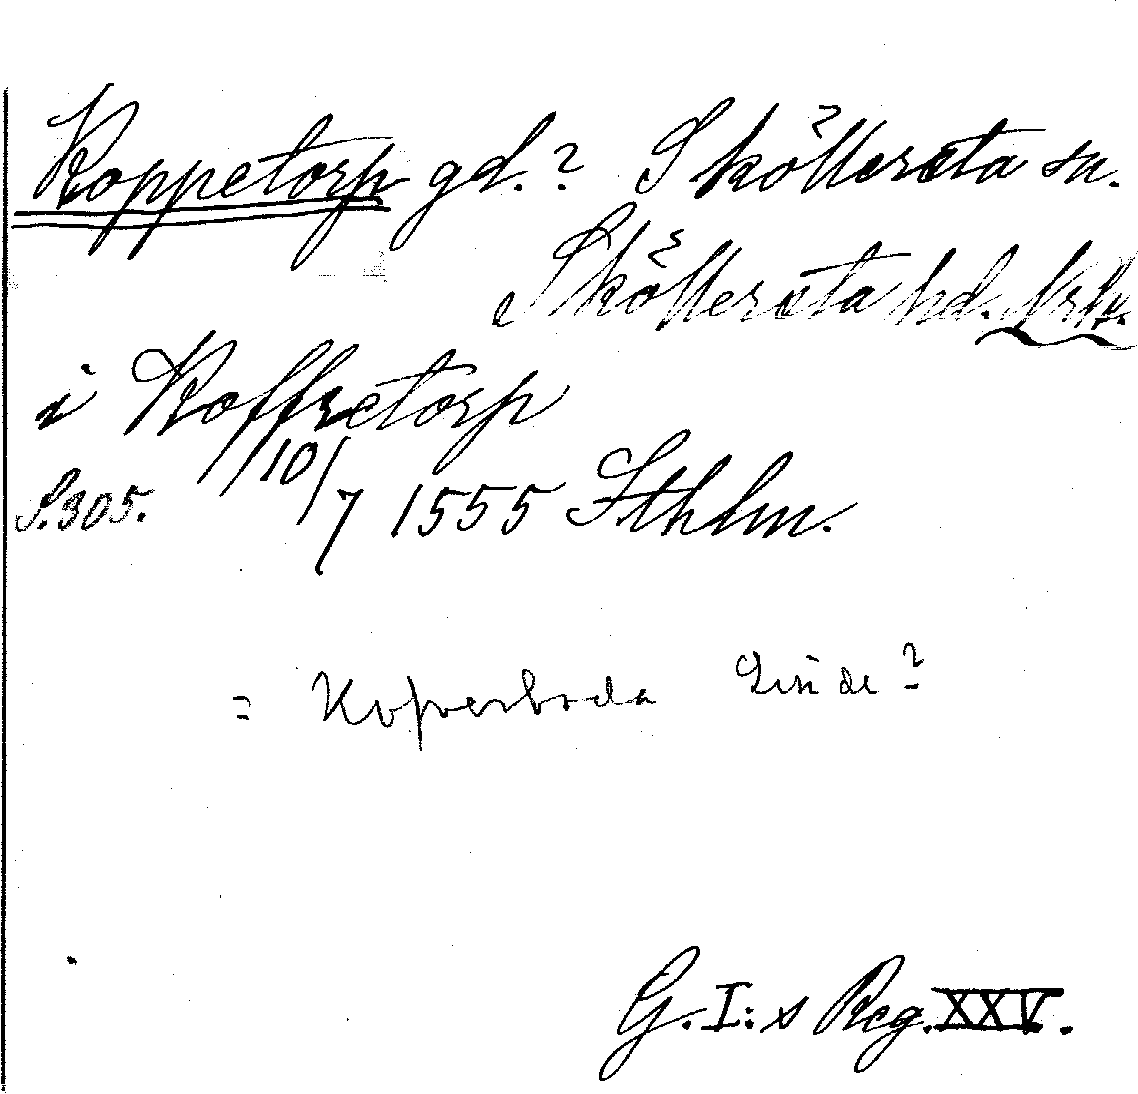 Koppetorp gd.? Sköllersta sn.
Sköllersta hd. Nrke.
i Koffretorp
S. 305. 10/7 1555 Sthlm.
= Kopparboda Linde?
G. I:s Reg. XXV.